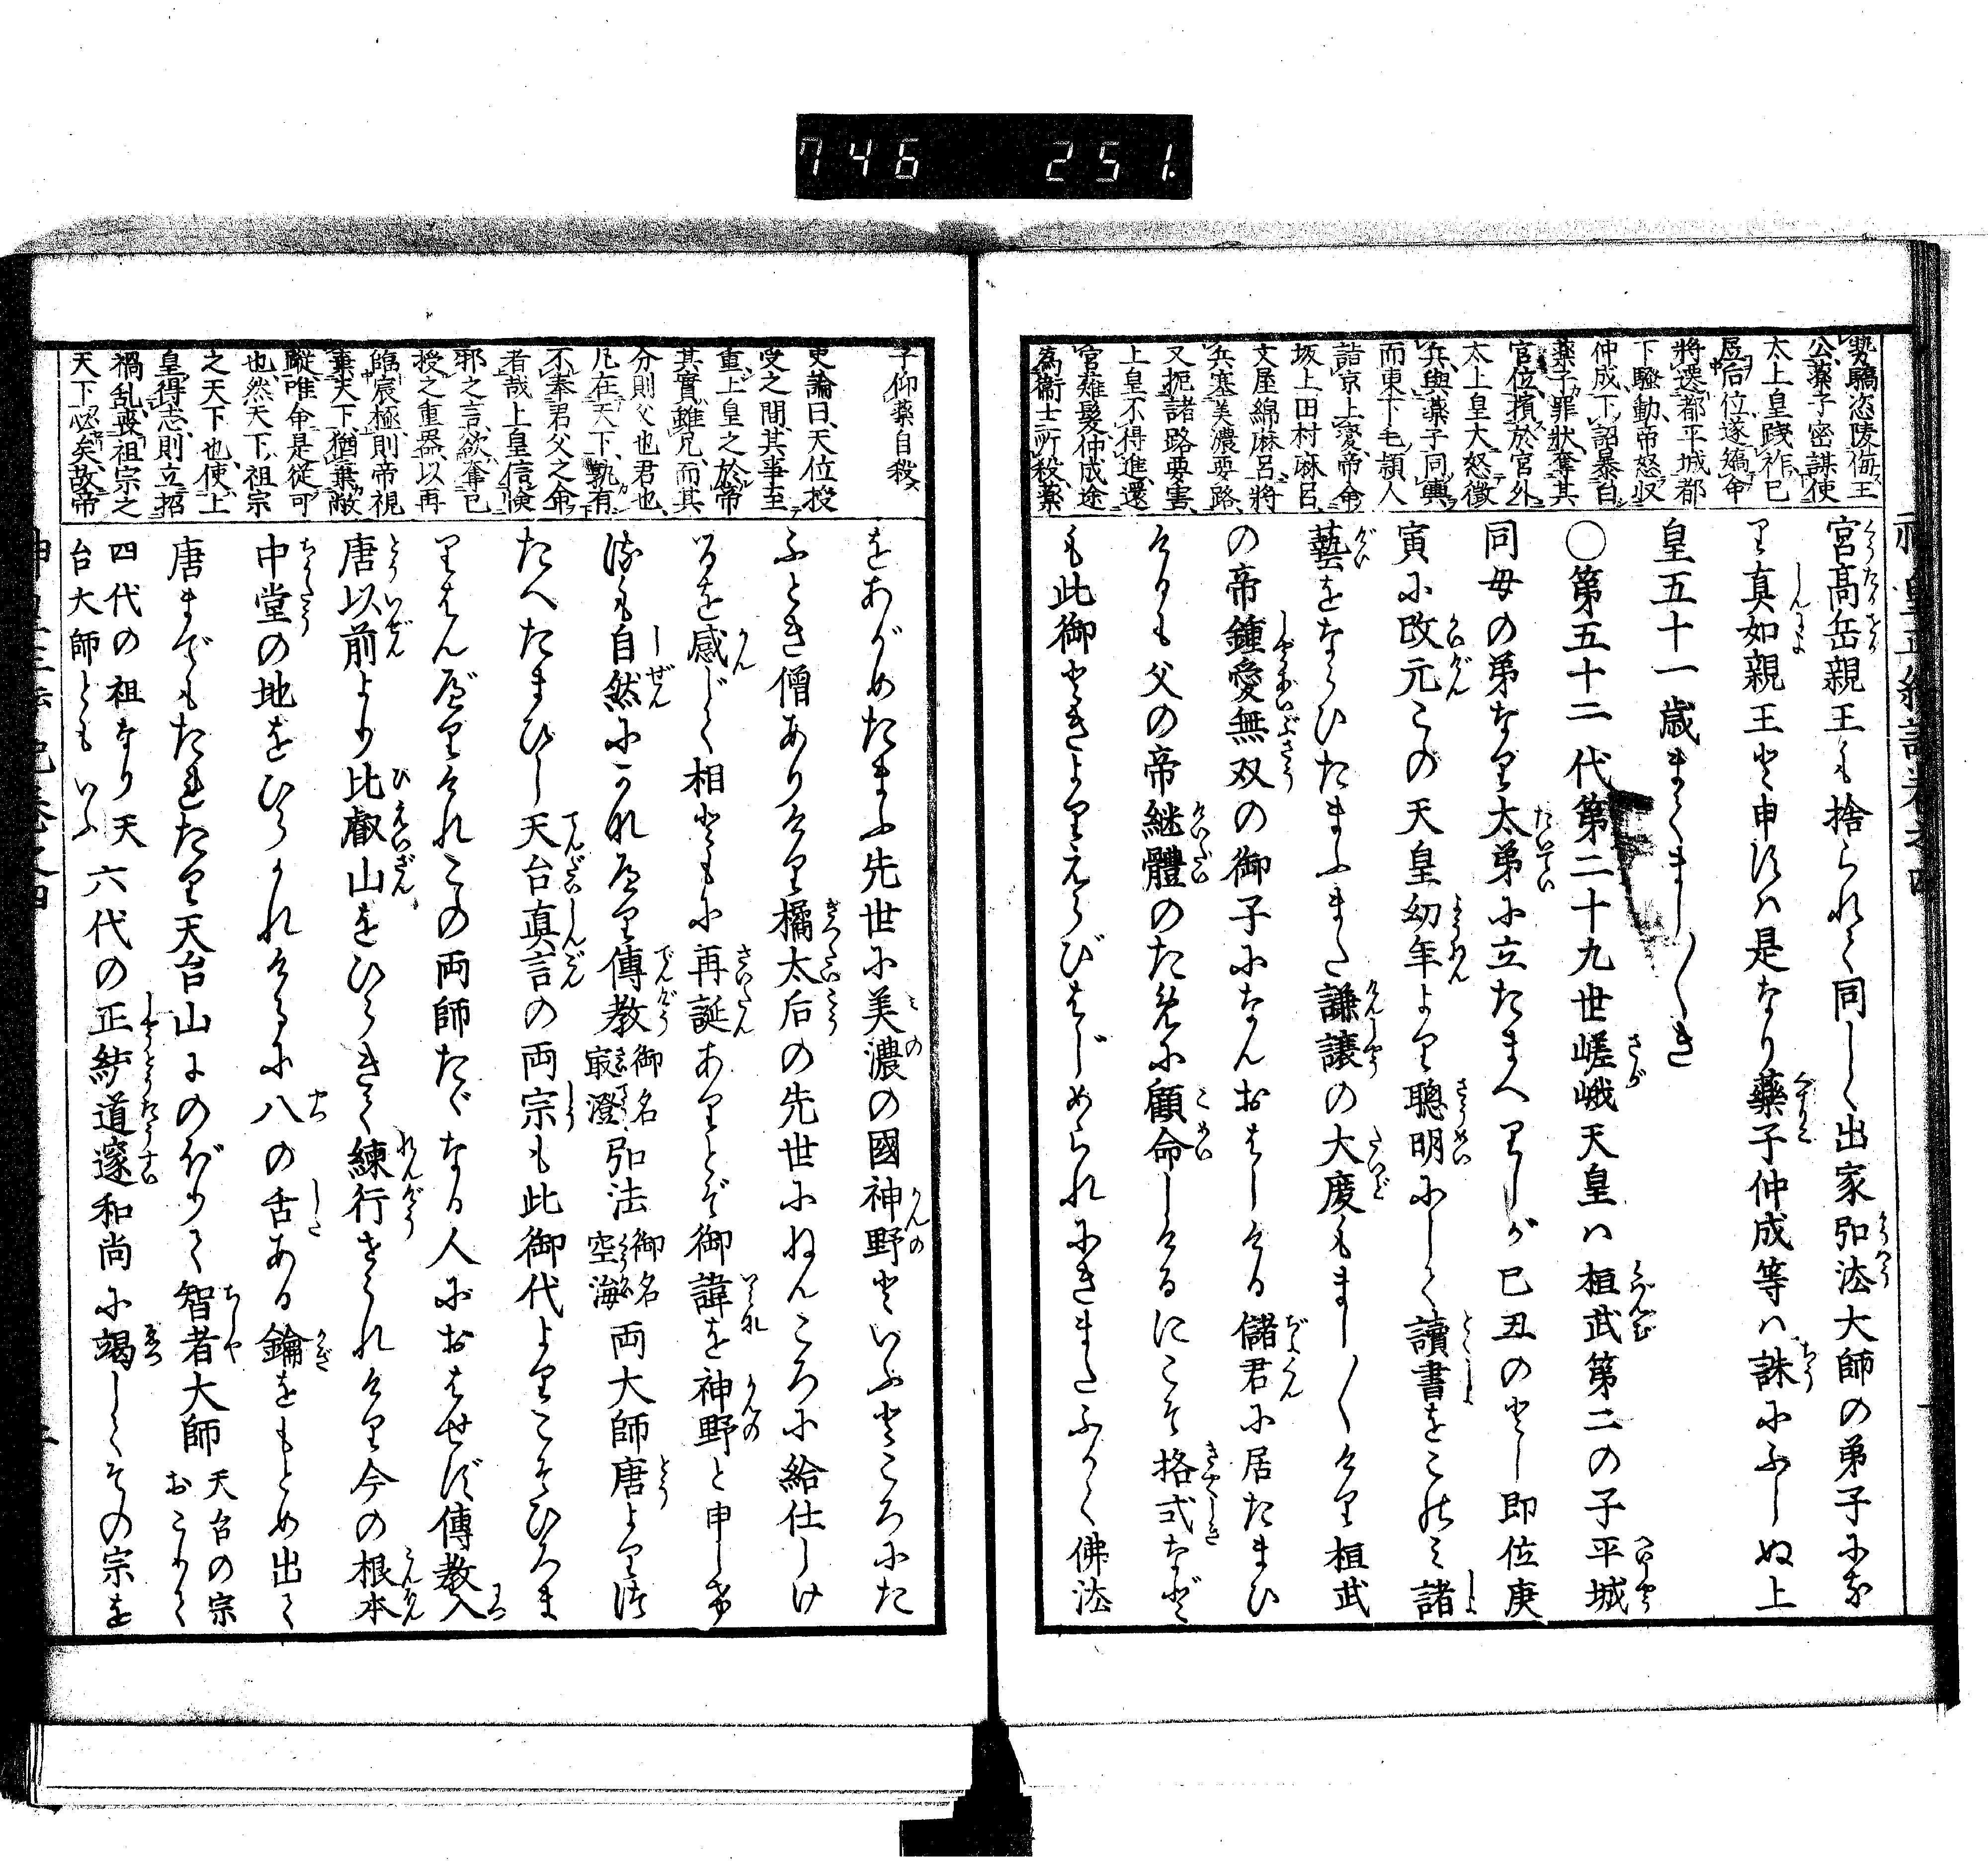 746 251.
勢驕恣陵侮王
公藥子密謀使
太上皇踐祚已
爲后位遂矯命
將遷都平城都
下騷動帝怒収
仲成下詔暴白
藥子罪狀奪其
官位擯於宮外
太上皇大怒徴
兵與藥子同輿
而東下毛頴人
詣京上変帝命
坂上田村麻呂
文屋綿麻呂將
兵塞美濃要路
又扼諸路要害
上皇不得進還
宮薙髪仲成途
為衛士所殺藥
宮髙岳親王も捨られて同しく出家弘法大師の弟子になり
真如親王と申すは是なり藥子仲成等は誅にふしぬ上
皇五十一歳まし〳〵き
〇第五十二代第二十九世嵯峨天皇は桓武第二の子平城
同母の弟なり太弟に立たまへりしが己丑のとし即位庚
寅に改元この天皇幼年より聰明にして讀書をこのみ諸
藝をならひたまふまた謙讓の大度もまし〳〵けり桓武
の帝鍾愛無双の御子になんおはしける儲君に居たまひ
けるも父の帝継體のために顧命しけるにこそ格式など
も此御ときよりえらびはじめられにきまたふかく佛法
子仰藥自殺
史論曰天位授
受之間其事至
重上皇之於帝
其實雖兄而其
分則父也君也
凡在天下孰有
不奉君父之命
者哉上皇信僉
邪之言欲奪已
授之重器以再
臨宸極則帝視
棄天下猶棄敝
蹝唯命是從可
也然天下祖宗
之天下也使上
皇得志則立招
禍乱喪祖宗之
天下必矣故帝
をあがめたまふ先世に美濃の國神野といふところにた
ふとき僧ありけり橘太后の先世にねんころに給仕しけ
るを感じて相ともに再誕ありとぞ御諱を神野と申しけ
るも自然にかなへり傳教御名最澄弘法御名空海両大師唐よりつ
たへたまひし天台真言の両宗も此御代よりこそひろま
りはんべりけれこの両師たゞなる人におはせず傳教入
唐以前より比叡山をひらきて練行せられけり今の根本
中堂の地をひらかれけるに八の舌ある鑰をもとめ出て
唐までもたれたり天台山にのぼりて智者大師天台の宗おこりて
四代の祖なり天台大師ともいふ六代の正統道邃和尚に謁してその宗を